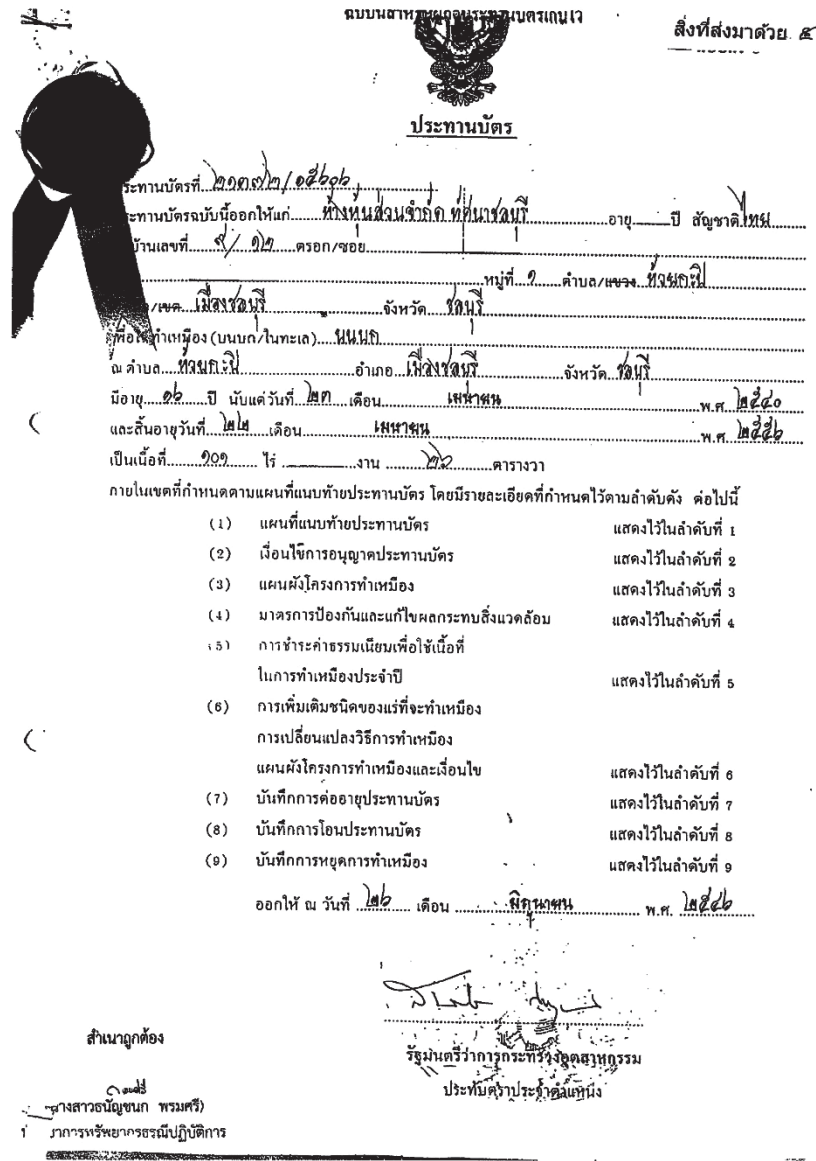 ฉบับสำหรับผู้ถือประทานบัตรเก็บไว้
สิ่งที่ส่งมาด้วย ๕
ประทานบัตร
ประทานบัตรที่ ๒๑๓๗๒/๑๕๖๐๖
ประทานบัตรฉบับนี้ออกให้แก่ ห้างหุ้นส่วนจำกัด ทัศนาชลบุรี อายุ ปี สัญชาติ ไทย
บ้านเลขที่ ๙/๑๒ ตรอก/ซอย
หมู่ที่ ๑ ตำบล/แขวง ห้วยกะปิ
/เขต เมืองชลบุรี จังหวัด ชลบุรี
เพื่อให้ทำเหมือง (บนบก/ในทะเล) บนบก
ณ ตำบล ห้วยกะปิ อำเภอ เมืองชลบุรี จังหวัด ชลบุรี
มีอายุ ๑๖ ปี นับแต่วันที่ ๒๓ เดือน เมษายน พ.ศ. ๒๕๔๐
และสิ้นอายุวันที่ ๒๒ เดือน เมษายน พ.ศ. ๒๕๕๖
เป็นเนื้อที่ ๑๐๑ ไร่ งาน ๒๖ ตารางวา
ภายในเขตที่กำหนดตามแผนที่แนบท้ายประทานบัตร โดยมีรายละเอียดที่กำหนดไว้ตามลำดับดัง ต่อไปนี้
(1) แผนที่แนบท้ายประทานบัตร แสดงไว้ในลำดับที่ 1
(2) เงื่อนไขการอนุญาตประทานบัตร แสดงไว้ในลำดับที่ 2
(3) แผนผังโครงการทำเหมือง แสดงไว้ในลำดับที่ 3
(4) มาตรการป้องกันและแก้ไขผลกระทบสิ่งแวดล้อม แสดงไว้ในลำดับที่ 4
(5) การชำระค่าธรรมเนียมเพื่อใช้เนื้อที่
ในการทำเหมืองประจำปี แสดงไว้ในลำดับที่ 5
(6) การเพิ่มเติมชนิดของแร่ที่จะทำเหมือง
การเปลี่ยนแปลงวิธีการทำเหมือง
แผนผังโครงการทำเหมืองและเงื่อนไข แสดงไว้ในลำดับที่ 6
(7) บันทึกการต่ออายุประทานบัตร แสดงไว้ในลำดับที่ 7
(8) บันทึกการโอนประทานบัตร แสดงไว้ในลำดับที่ 8
(9) บันทึกการหยุดการทำเหมือง แสดงไว้ในลำดับที่ 9
ออกให้ ณ วันที่ ๒๖ เดือน มิถุนายน พ.ศ. ๒๕๔๖
รัฐมนตรีว่าการกระทรวงอุตสาหกรรม
ประทับตราประจำตำแหน่ง
สำเนาถูกต้อง
นางสาวธนัญชนก พรมศรี)
าการทรัพยากรธรณีปฏิบัติการ